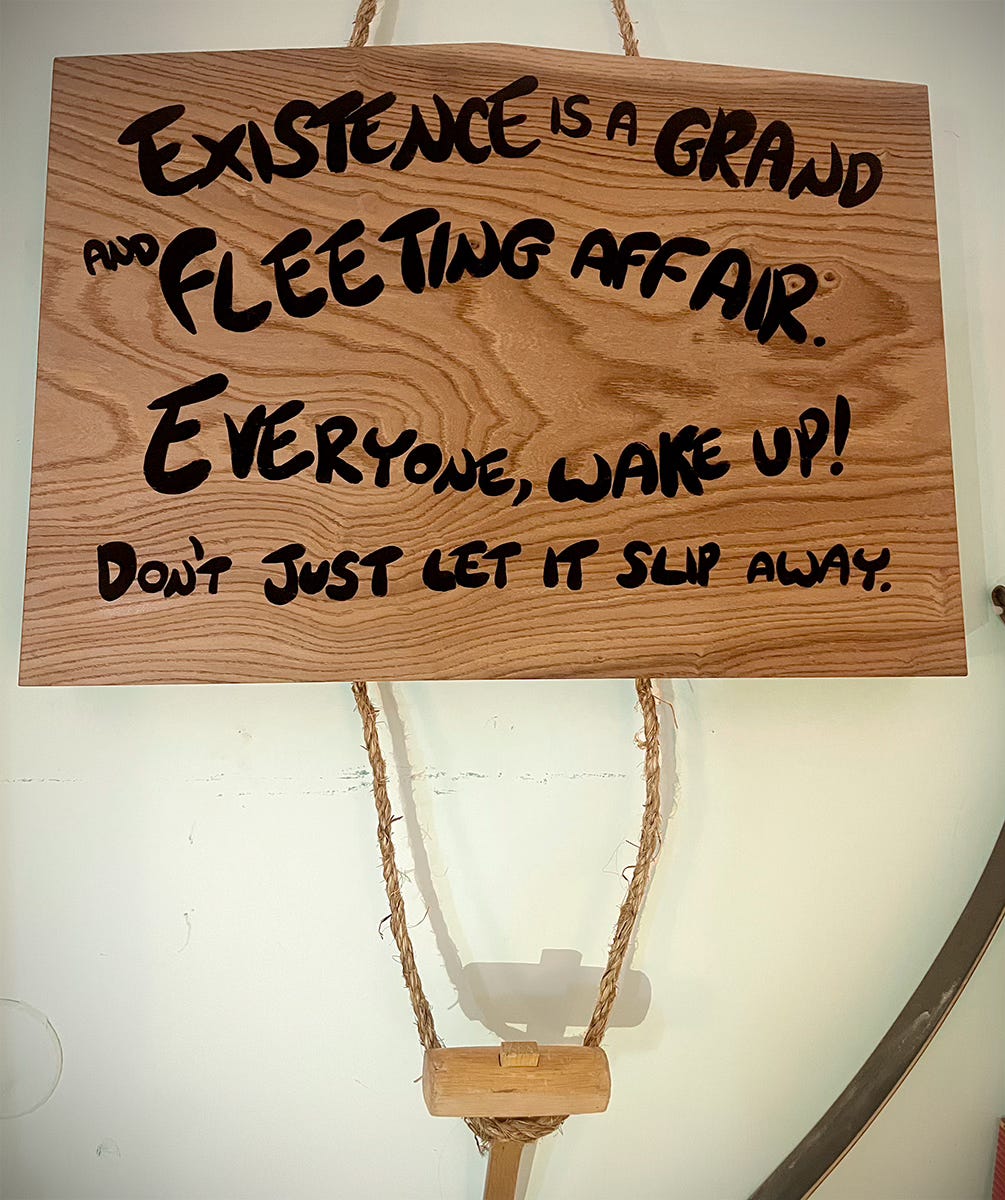 EXISTENCE IS A GRAND
AND FLEETING AFFAIR.
EVERYONE, WAKE UP!
DON'T JUST LET IT SLIP AWAY.